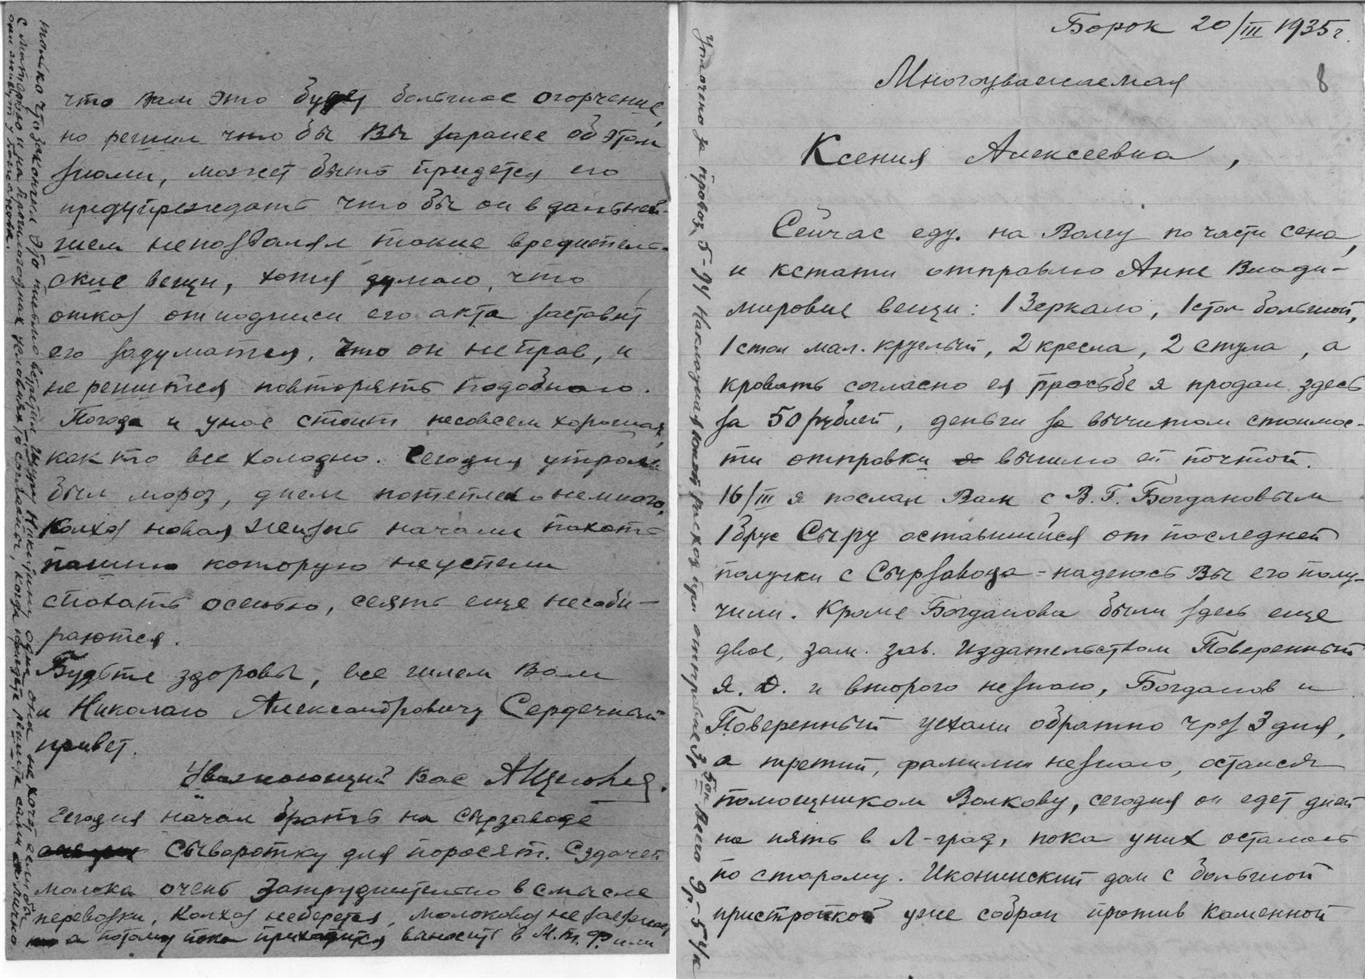 что вам это будет большое огорчение,
но решил что бы Вы заранее об этом
знали, может быть придется его
предупреждать что бы он в дальней-
шем непозволял такие вредитель-
ские вещи, хотя думаю, что
отказ от подписи его акта заставит
его задуматся, что он неправ, и
не решится повторять подобного.
Погода у нас стоит несовсем хорошая,
как то все холодно. Сегодня утром
был мороз, днем потеплело немного,
Колхоз новая жизнь начали пахать
пашню которую неуспели
спахать осенью, сеять еще несоби-
раются.
Будьте здоровы, все шлем Вам
и Николаю Александровичу Сердечный
привет.
Уважающий Вас
Сегодня начал брать на сырзаводе
сыворотку для поросят. Сдача
молока очень затруднительно в смысле
перевозки, Колхоз неберется, молоковоз не
а потому пока приходится вносить в М.т.Ф. или
только что закончил это письмо встретил
с матерью и на прошлогодних условиях
Борок 20/III 1935 г.
8
Многоуважаемая
Ксения Алексеевна,
Сейчас еду на Волгу по части сена,
и кстати отправлю Анне Влади-
мировне вещи: 1 Зеркало, 1 стол большой,
1 стол мал. круглый, 2 кресла, 2 стула, а
кровать согласно ея просьбе я продал здесь
за 50 рублей, деньги за вычитом стоимос-
ти отправки вышлю ей почтой.
16/III я послал Вам с В. Г. Богдановым
1 брус Сыру оставшийся от последней
получки с Сырзавода - надеюсь Вы его полу-
чили. Кроме Богданова были здесь еще
двое, зам. зав. издательством Поверенный
Я. О. и второго незнаю, Богданов и
Поверенный уехали обратно чрез 3 дня,
а третий, фамилии незнаю, остался
помощником Волкову, сегодня он едет дней
на пять в Л-град, пока у них осталось
по старому. Иконинский дом с большой
пристройкой уже собран против Каменной
Уплочено за провоз, 5-94 Накладная расход при отправке Всего 9р-54к